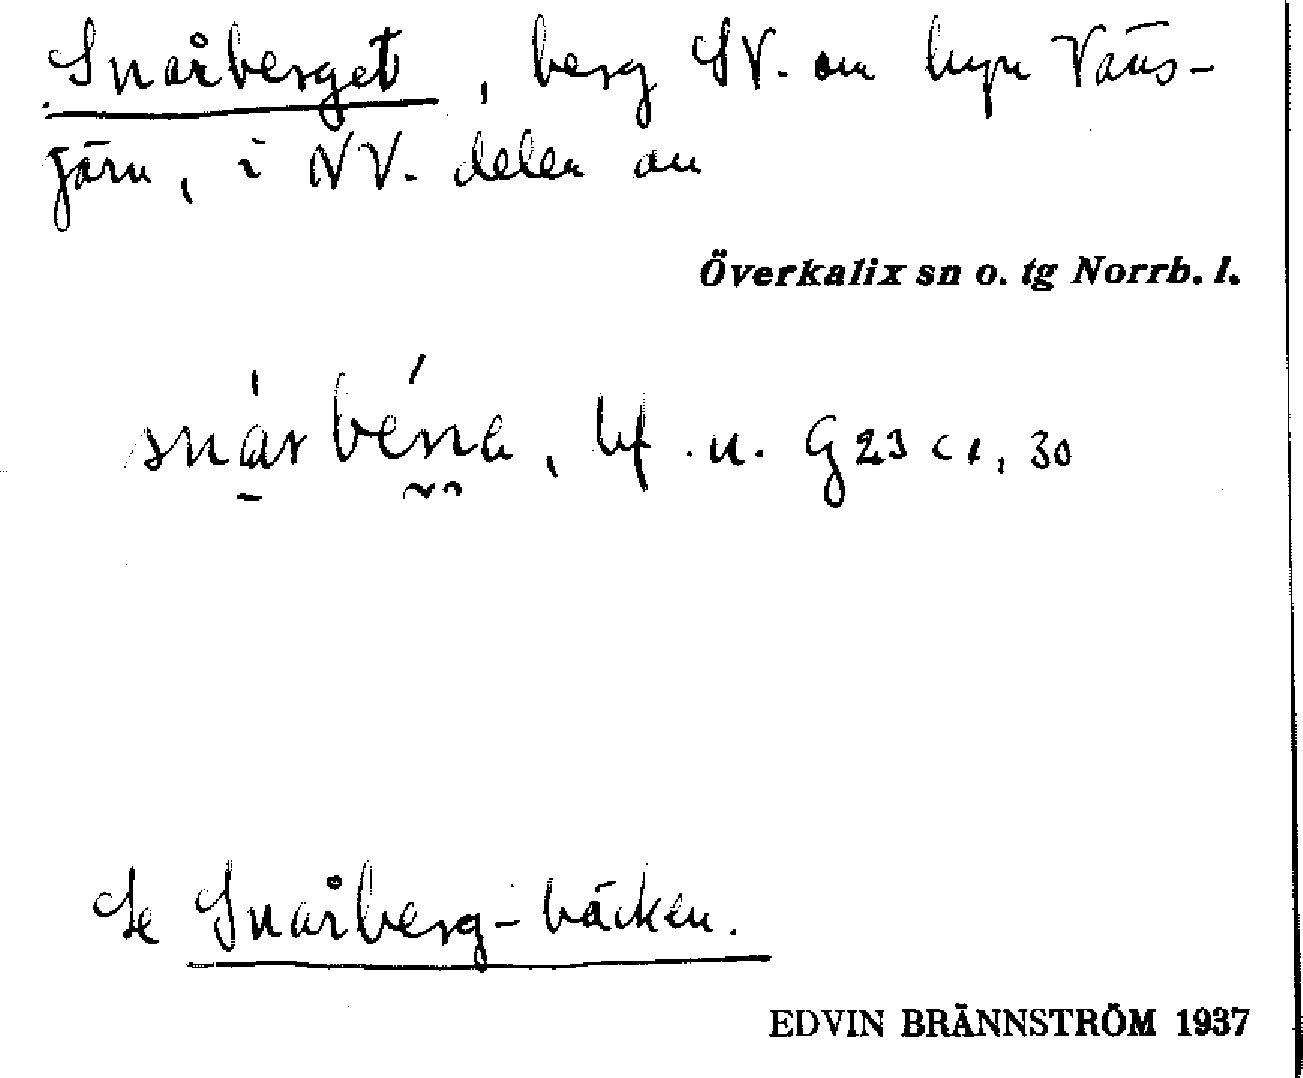 Snårberget, berg SV. om byn Väns-
gärn, i NV. delen av
Överkalix sn o. tg Norrb. l.
snár bérra, bf. n. G 23 c 1, 30
Se Snårberg-bäcken.
EDVIN BRÄNNSTRÖM 1937